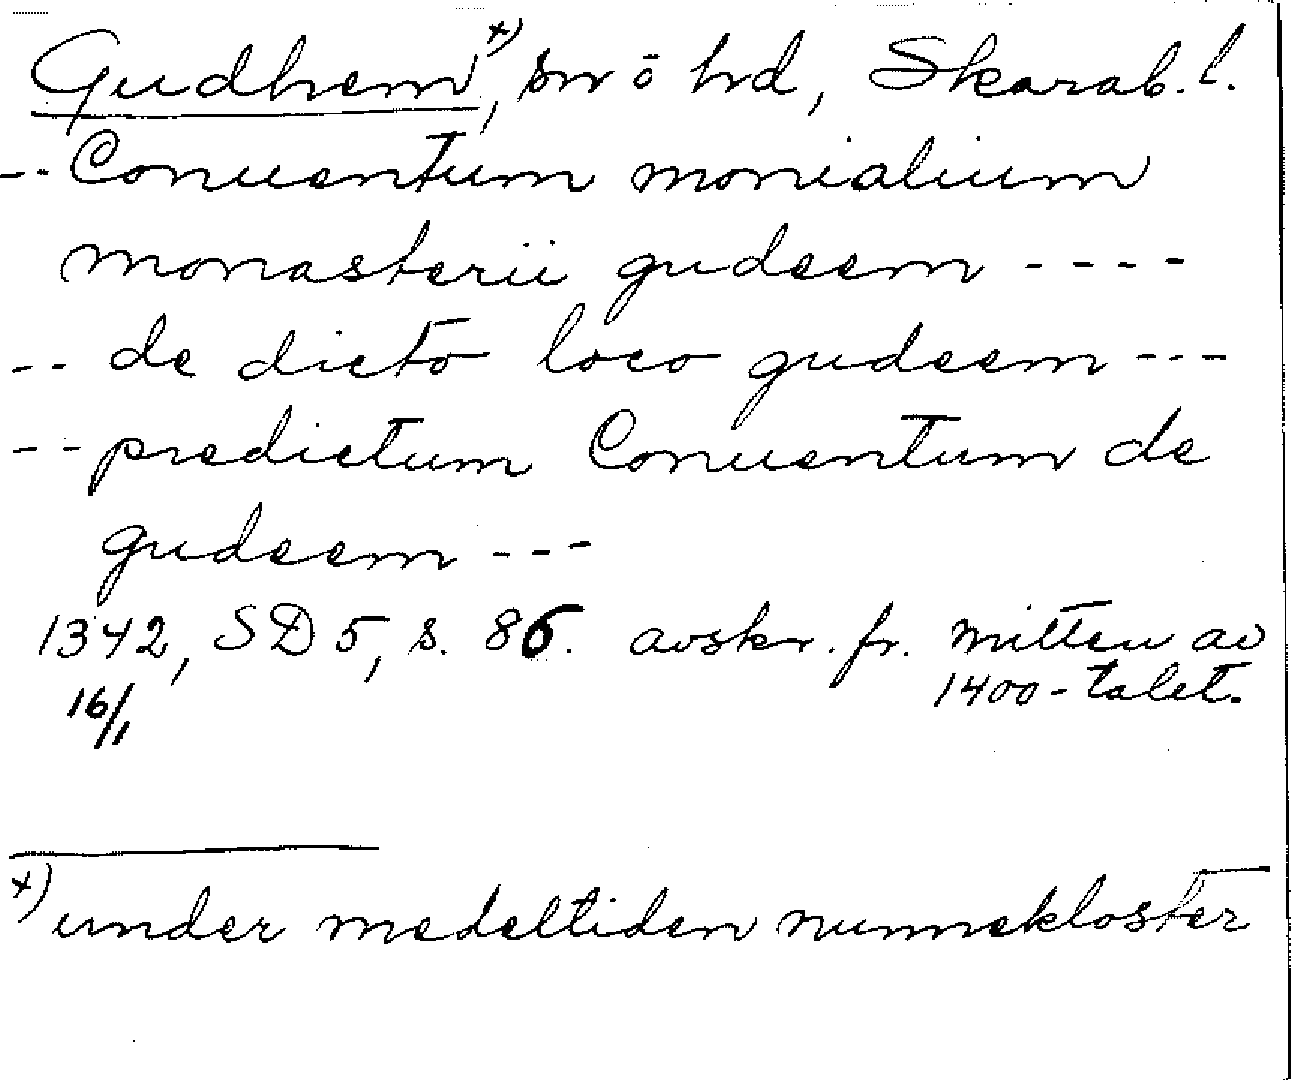 Gudhem x), sn ō hd, Skarab. l.
-- Conuentum monialium
monasterii gudeem ----
-- de dicto loco gudeem ---
-- predictum Conuentum de
gudeem ---
1342, SD 5, s. 86. avskr. fr. mitten av
16/1 1400-talet.
x) under medeltiden nunnekloster